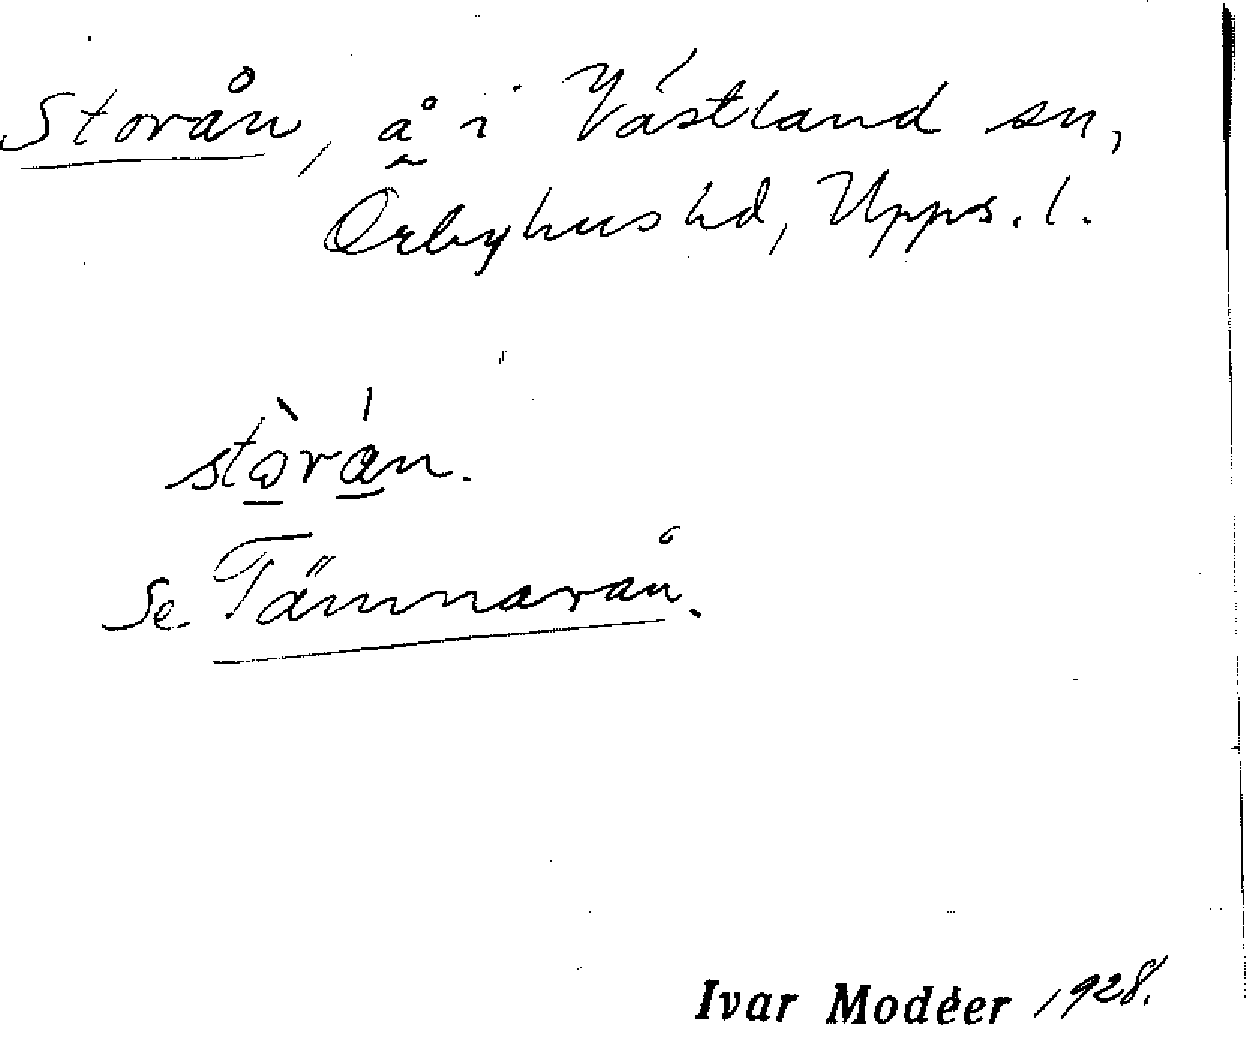 Storån, å i Västland sn,
Örbyhus hd, Upps. l.
stòrán.
Se Tämnarån.
Ivar Modéer 1928.